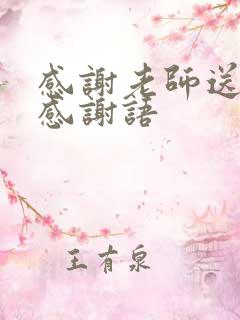 感謝老師送
感謝語
王有泉